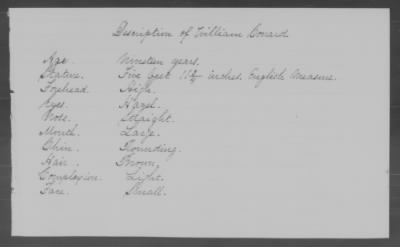 Description of William Conard
Age. Nineteen years.
Stature. Five feet 11½ inches, English Measure.
Forehead. High.
Eyes. Hazel.
Nose. Straight.
Mouth. Large.
Chin. Rounding.
Hair. Brown.
Complexion. Light.
Face. Small.